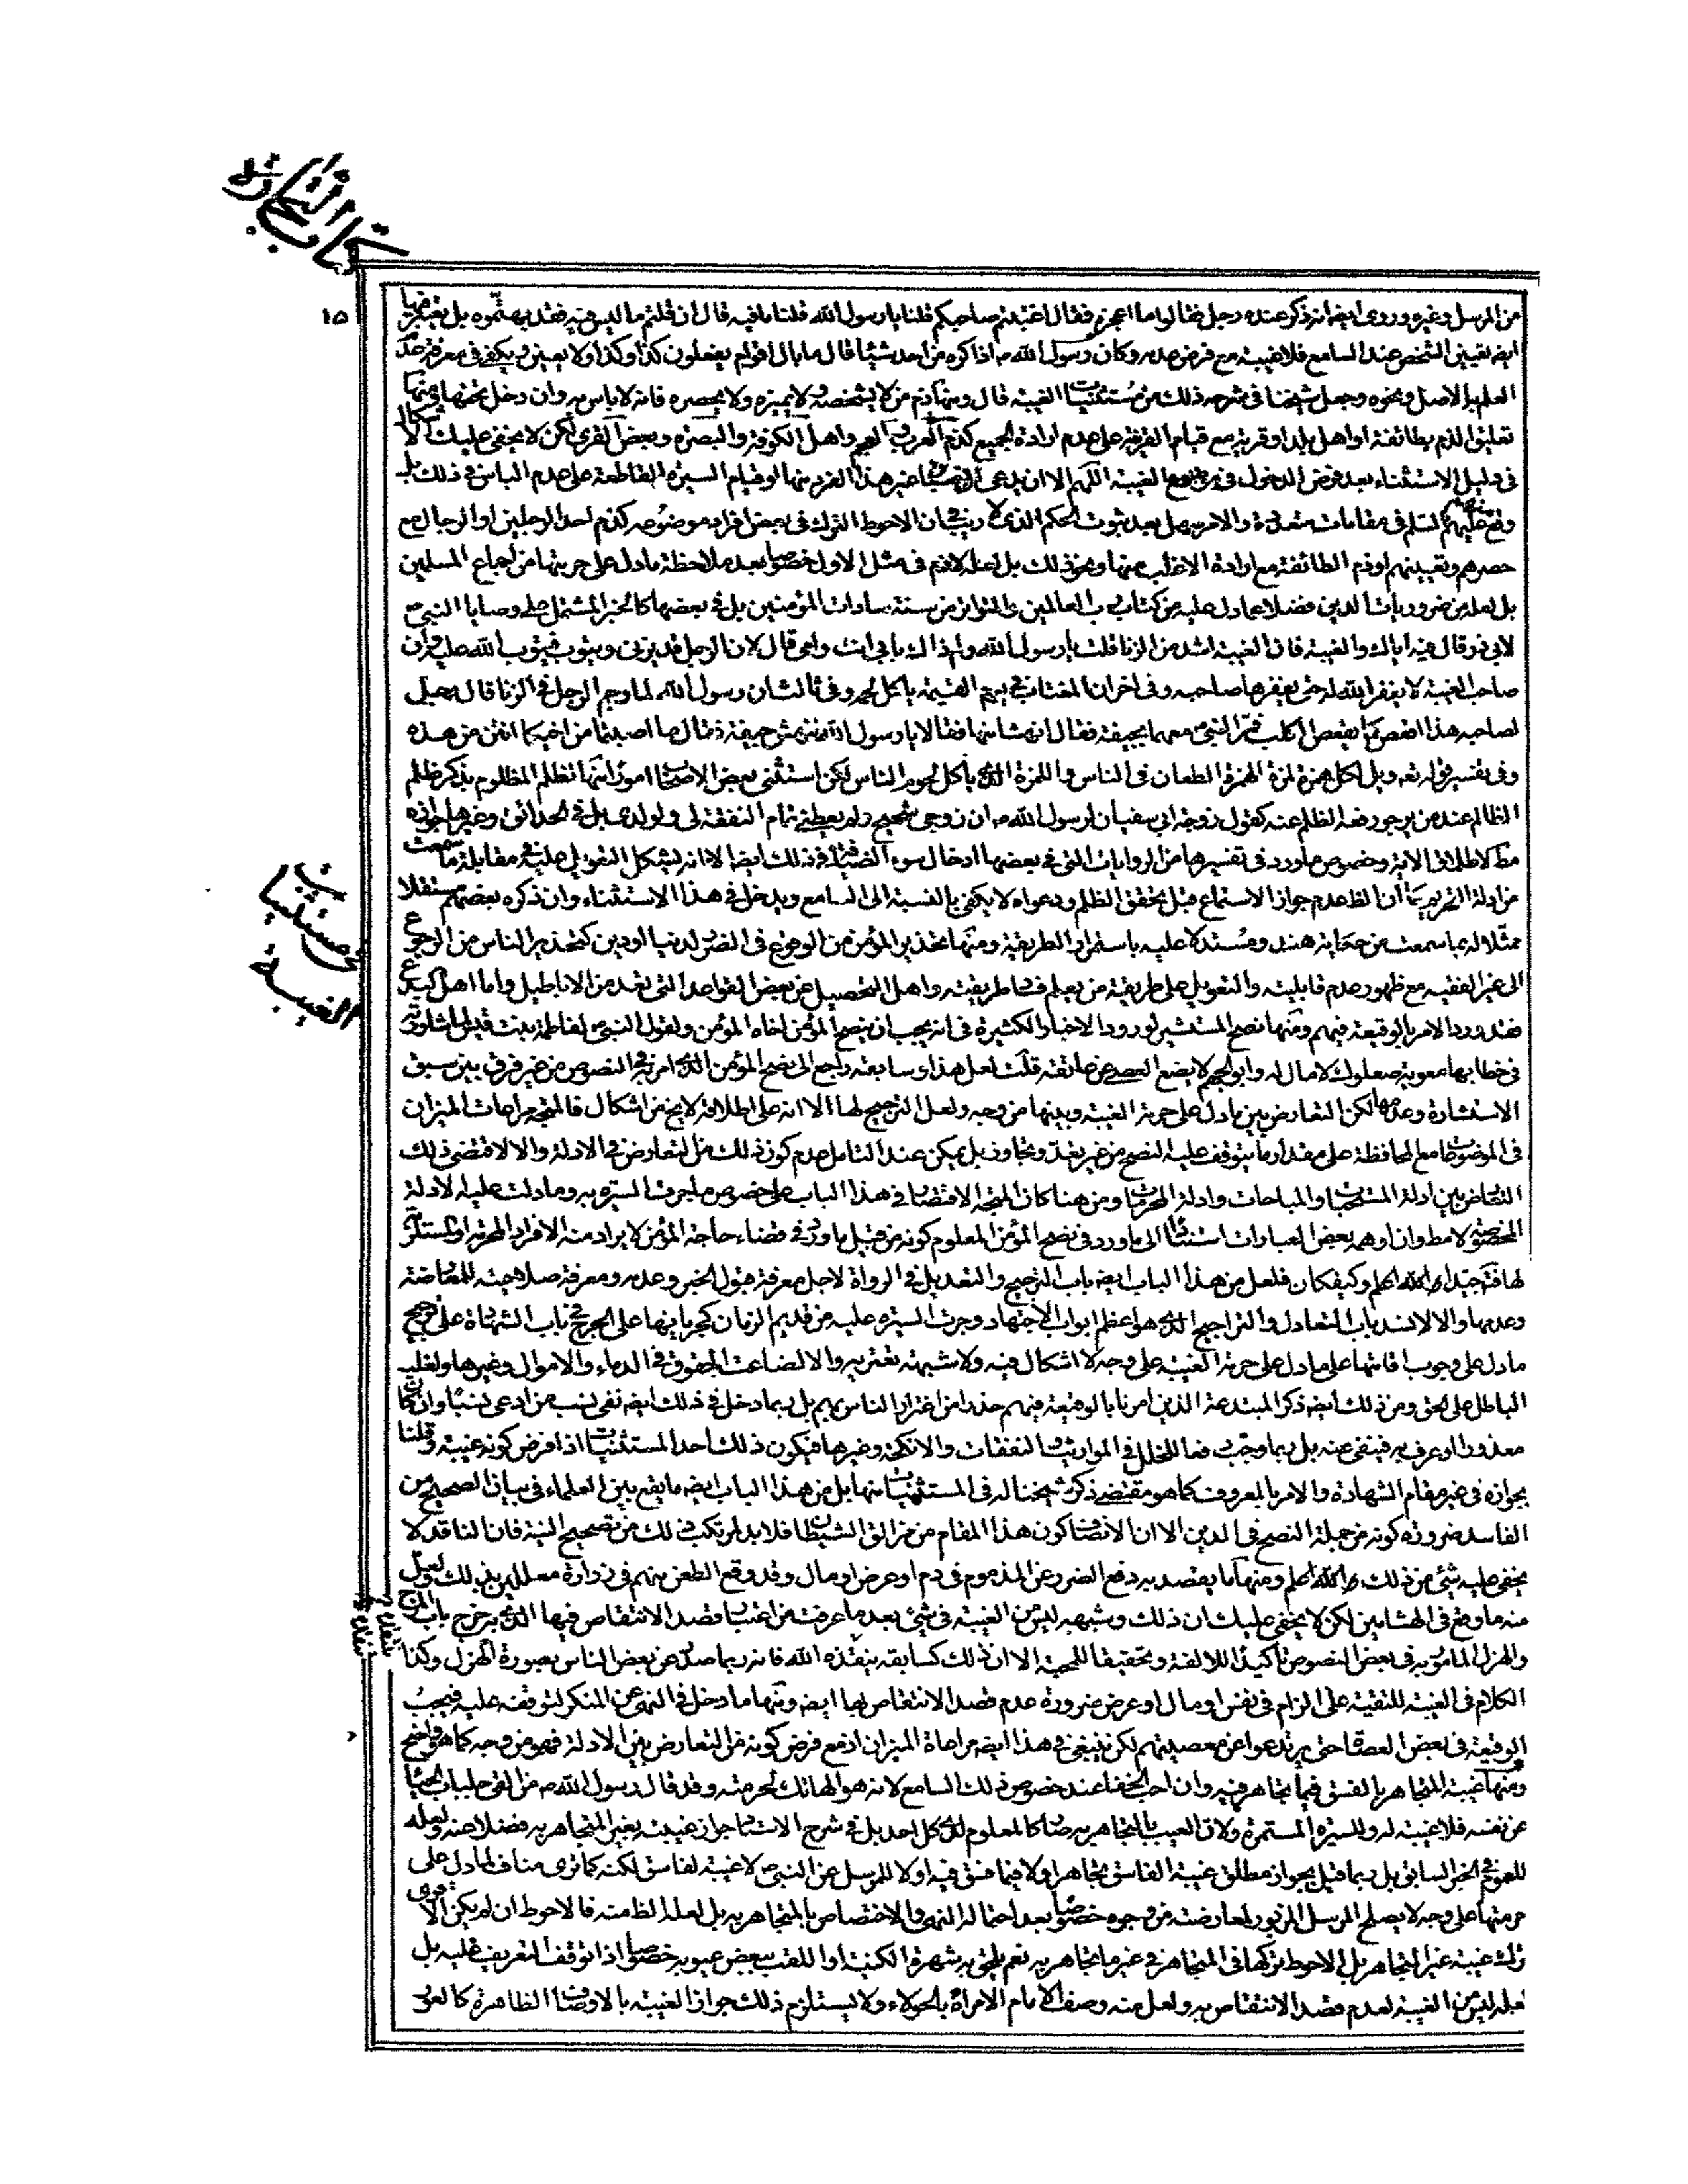 كتاب التجارة
١٥
من المرسل وغيره وروى ايضا انه ذكر عنده رجل فقالوا ما اعجزه فقال اغتبتم صاحبكم قلنا يا رسول الله قلنا ما فيه قال ان قلتم ما ليس فيه فقد بهتموه بل يعتبر فيها
ايضا تعيين الشخص عند السامع فلا غيبة مع فرض عدمه وكان رسول الله ص اذا كره من احد شيئا قال ما بال اقوام يفعلون كذا وكذا ولا يعين يكفى فى معرفته
العلم بالاصل ونحوه وجعل شيخنا فى شرحه ذلك من مستثنيات الغيبة قال ومنها ذم من لا يشخصه ولا يميزه ولا يحصره فانه لا باس به وان دخل تحتها ومنها
تعليق الذم بطائفة او اهل بلد او قرية مع قيام القرينة على عدم ارادة الجميع كذم العرب والعجم واهل الكوفة والبصرة وبعض القرى لكن لا يخفى عليك الاشكال
فى دليل الاستثناء بعد فرض الدخول فى موضوع الغيبة اللهم الا ان يدعى غير هذا الفرد منها او قيام السيرة القاطعة على عدم الباس فى ذلك بل
وقع منهم عليهم السلم فى مقامات متعددة والامر سهل بعد ثبوت الحكم الذى لا ريب فى ان الاحوط الترك فى بعض افراد موضوعه كذم احد الرجلين او الرجال مع
حصرهم وتعيينهم او ذم الطائفة مع ارادة الاغلب منها ونحو ذلك بل لعله لازم فى مثل الاول خصوصا بعد ملاحظة ما دل على حرمتها من اجماع المسلمين
بل لعله من ضروريات الدين فضلا عما دل عليه من كتاب رب العالمين والمتواتر من سنة سادات المؤمنين بل فى بعضها كالخبر المشتمل على وصايا النبى ص
لابى ذر قال فيه اياك والغيبة فان الغيبة اشد من الزنا قلت يا رسول الله ولم ذاك بابى انت وامى قال لان الرجل قد يزنى ويتوب فيتوب الله عليه وان
صاحب الغيبة لا يغفر الله له حتى يغفرها صاحبه وفى اخر ان المغتاب فى يوم القيمة ياكل لحمه وفى ثالث ان رسول الله لما رجم الرجل فى الزنا قال رجل
لصاحبه هذا اقعص كما يقعص الكلب فمر النبى ص معهما بجيفة فقال انهشا منها فقالا يا رسول الله ننهش جيفة فقال ما اصبتما من اخيكما انتن من هذه
وفى تفسير قوله تعه ويل لكل همزة لمزة الهمزة الطعان فى الناس واللمزة الذى ياكل لحوم الناس لكن استثنى بعض الاصحاب امورا منها تظلم المظلوم بذكر ظلم
الظالم عند من يرجو رفعه الظلم عنه كقول زوجة ابى سفيان لرسول الله ص ان زوجى شحيح ولم يعطنى تمام النفقة لى ولولدى بل فى الحدائق وغيرها جوازه
مط لاطلاق الاية وخصوص ما ورد فى تفسيرها من الروايات التى فى بعضها ادخال سوء الضيافة فى ذلك ايضا الا انه يشكل التعويل عليه فى مقابلة ما سمعت
من ادلة التحريم كما ان الظ عدم جواز الاستماع قبل تحقق الظلم ودعواه لا يكفى بالنسبة الى السامع ويدخل فى هذا الاستثناء وان ذكره بعضهم مستقلا
ممثلا له بما سمعت من حكاية هند ومستدلا عليه باستمرار الطريقة ومنها تحذير المؤمن من الوقوع فى الضرر لدنيا او دين كتحذير الناس من الرجوع
الى غير الفقيه مع ظهور عدم قابليته والتعويل على طريقة من يعلم فساد طريقته واهل التحصيل عن بعض القواعد التى تعد من الاباطيل واما اهل البدع
فقد ورد الامر بالوقيعة فيهم ومنها نصح المستشير لورود الاخبار الكثيرة فى انه يجب ان ينصح المؤمن اخاه المؤمن ولقول النبى ص لفاطمة بنت قيس لما شاورته
فى خطابها معوية صعلوك لا مال له وابو الجهم لا يضع العصى عن عاتقه قلت لعل هذا وسابقه راجع الى نصح المؤمن الذى امر به فى النصوص من غير فرق بين سبق
الاستشارة وعدمها لكن التعارض بين ما دل على حرمة الغيبة وبينها من وجه ولعل الترجيح لها الا انه على اطلاقه لا يخ من اشكال فالمتجه مراعات الميزان
فى الموضوعات مع المحافظة على مقدار ما يتوقف عليه النصح من غير تعد وتجاوز بل يمكن عند التامل عدم كون ذلك من التعارض فى الادلة والا لاقتضى ذلك
التعارض بين ادلة المستحبات والمباحات وادلة المحرمات ومن هنا كان المتجه الاقتصار فى هذا الباب على خصوص ما جرت السيرة به وما دلت عليه الادلة
المخصوصة لا مط وان اوهمه بعض العبارات استنادا الى ما ورد فى نصح المؤمن المعلوم كونه من قبيل ما ورد فى قضاء حاجة المؤمن لا يراد منه الافراد المحرمة او المستلزمة
لها جيدا والله اعلم وكيف كان فلعل من هذا الباب ايضا باب الترجيح والتعديل فى الرواة لاجل معرفة قبول الخبر وعدمه ومعرفة صلاحيته للمعارضة
وعدمها والا لانسد باب التعادل والتراجيح الذى هو اعظم ابواب الاجتهاد وجرت السيرة عليه من قديم الزمان كجريانها على الجرح فى باب الشهادة على ترجيح
ما دل على وجوب اقامتها على ما دل على حرمة الغيبة على وجه لا اشكال فيه ولا شبهة تعتريه والا لضاعت الحقوق فى الدماء والاموال وغيرها ولغلب
الباطل على الحق ومن ذلك ايضا ذكر المبتدعة الذين امرنا بالوقيعة فيهم حذرا من اغترار الناس بهم بل ربما دخل فى ذلك ايضا نفى نسب من ادعى نسبا وان كان
معذورا او عرف به فينفى عنه بل ربما وجب دفعا للخلل فى المواريث والنفقات والانكحة وغيرها فيكون ذلك احد المستثنيات اذا فرض كونه غيبة وقلنا
بجوازه فى غير مقام الشهادة والامر بالمعروف كما هو مقتضى ذكر شيخنا له فى المستثنيات منها بل من هذا الباب ايضا ما يقع بين العلماء فى بيان الصحيح من
الفاسد ضرورة كونه من جملة النصح فى الدين الا ان الانصاف كون هذا المقام من مزالق الشيطان فلابد لمرتكب ذلك من تصحيح النية فان الناقد لا
يخفى عليه شئ من ذلك والله اعلم ومنها ما يقصد به دفع الضرر عن المذموم فى دم او عرض او مال وقد وقع الطعن منهم فى زرارة معللين بذلك ولعل
منه ما وقع فى الهشامين لكن لا يخفى عليك ان ذلك وشبهه ليس من الغيبة فى شئ بعد ما عرفت من اعتبار قصد الانتقاص فيها الذى به خرج باب المزح
والهزل المامور به فى بعض النصوص تاكيدا للالفة وتحقيقا للمحبة الا ان ذلك كسابقه ينقذه الله فانه ربما صدر عن بعض الناس بصورة الهزل وكذا
الكلام فى الغيبة للتقية على الزام فى نفس او مال او عرض ضرورة عدم قصد الانتقاص بها ايضا ومنها ما دخل فى النهى عن المنكر لتوقفه عليه فيجب
الوقيعة فى بعض العصاة حتى يرتدعوا عن معصيتهم لكن ينبغى فى هذا ايضا مراعاة الميزان اذ مع فرض كونه من التعارض بين الادلة فهو من وجه كما هو واضح
ومنها غيبة المتجاهر بالفسق فيما تجاهر فيه وان احب الخفا عند خصوص ذلك السامع لانه هو الهاتك لحرمته وقد قال رسول الله ص من القى جلباب الحياء
عن نفسه فلا غيبة له وللسيرة المستمرة ولان العيب المتجاهر به صار كالمعلوم لدى كل احد بل فى شرح الاستاد جواز غيبته بغير المتجاهر به فضلا عنه ولعله
للعموم فى الخبر السابق بل ربما قيل بجواز مطلق غيبة الفاسق تجاهر او لا فيما فسق فيه او لا للمرسل عن النبى ص لا غيبة لفاسق لكنه كما ترى مناف لما دل على
حرمتها على وجه لا يصلح المرسل المزبور لمعارضته من وجوه خصوصا بعد احتمال ارادة النهى والاختصاص بالمتجاهر به بل لعله الظ منه فالاحوط ان لم يكن الاقوى
ترك غيبة غير المتجاهر بل الاحوط تركها فى المتجاهر فى غير ما تجاهر به نعم يلحق به شهرة الكنية او اللقب ببعض عيوبه خصوصا اذا توقف التعريف عليه بل
لعله ليس من الغيبة لعدم قصد الانتقاص به ولعل منه وصف الامام الامراة بالحولاء ولا يستلزم ذلك جواز الغيبة بالاوصاف الظاهرة كالعور
فى مستثنيات
الغيبة